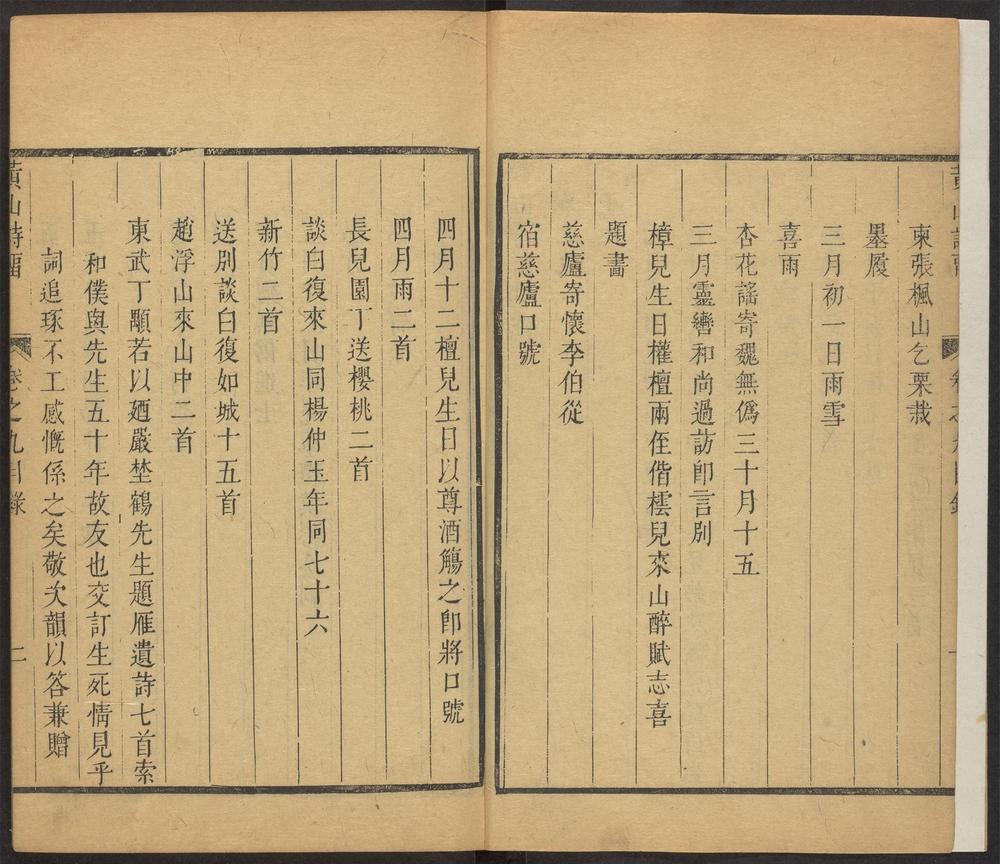 柬張楓山乞栗栽
墨履
三月初一日雨雪
喜雨
杏花謠寄魏無僞三十月十五
三月靈轡和尚過訪卽言別
樟兒生日權檀兩侄偕橒兒來山醉賦志喜
題畵
慈廬寄懷李伯從
宿慈廬口號
四月十二檀兒生日以尊酒觴之卽將口號
四月雨二首
長兒園丁送櫻桃二首
談白復來山同楊仲玉年同七十六
新竹二首
送別談白復如城十五首
趙浮山來山中二首
東武丁顒若以廼嚴埜鶴先生題雁遺詩七首索
和僕與先生五十年故友也交訂生死情見乎
詞追琢不工感慨係之矣敬次韻以答兼贈
黃山詩畱
卷之九目錄
二